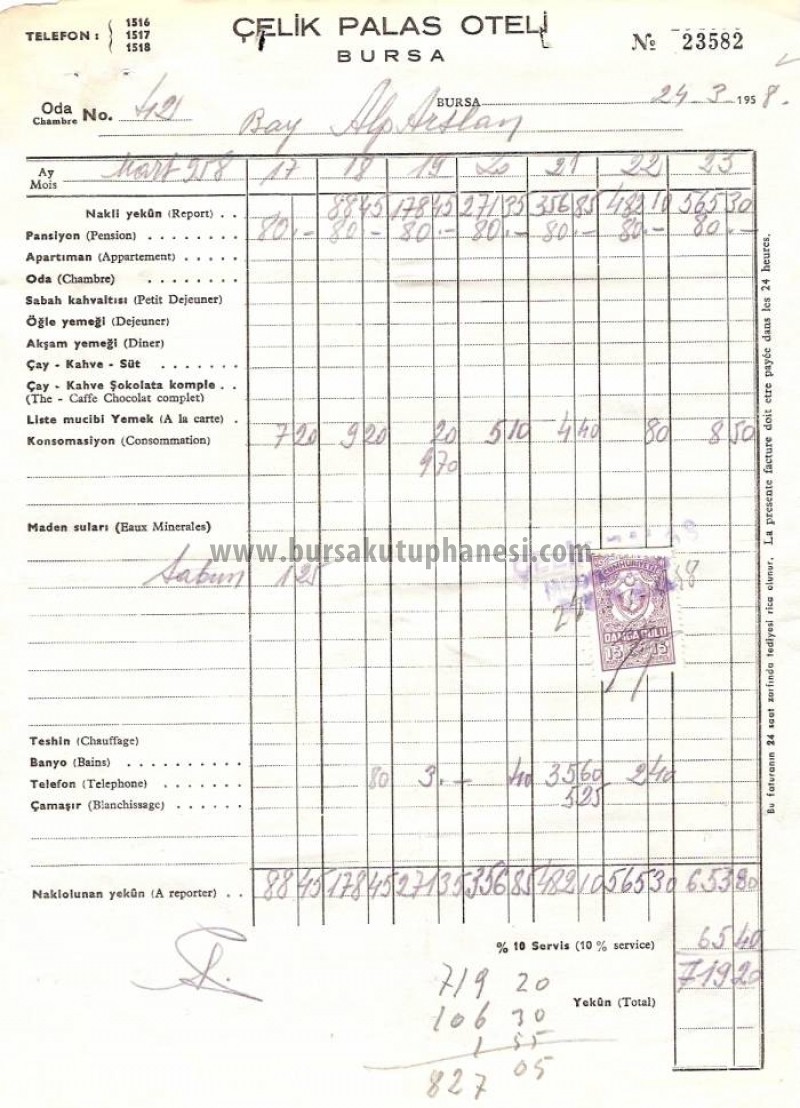 TELEFON : { 1516
1517
1518
ÇELİK PALAS OTELİ
BURSA
№ 23582
Oda
Chambre No. 42
BURSA 24-3-1958.
Bay Alp Arslan
Ay
Mois Mart 958 17 18 19 20 21 22 23
Nakli yekûn (Report) . . 88 45 178 45 271 35 356 85 482 10 565 30
Pansiyon (Pension) . . . . . . . . 80.- 80.- 80.- 80.- 80.- 80.- 80.-
Apartıman (Appartement) . . . . .
Oda (Chambre) . . . . . . . .
Sabah kahvaltısı (Petit Dejeuner)
Öğle yemeği (Dejeuner)
Akşam yemeği (Diner)
Çay - Kahve - Süt . . . . . . .
Çay - Kahve Şokolata komple . .
(The - Caffe Chocolat complet)
Liste mucibi Yemek (A la carte) .
Konsomasiyon (Consommation) 7 20 9 20 20 5 10 4 40 80 8 50
9 70
Maden suları (Eaux Minerales)
www.bursakutuphanesi.com
Sabun 1 25
DAMGA PULU
15 15
Teshin (Chauffage)
Banyo (Bains) . . . . . . . . . .
Telefon (Telephone) . . . . . . 80 3.- 40 35 60 2 40
Çamaşır (Blanchissage) . . . . . . 5 25
Naklolunan yekûn (A reporter) . . 88 45 178 45 271 35 356 85 482 10 565 30 653 80
% 10 Servis (10 % service) 65 40
719 20
Yekûn (Total)
719 20
106 30
1 55
827 05
Bu faturanın 24 saat zarfında tediyesi rica olunur. La presente facture doit etre payée dans les 24 heures.